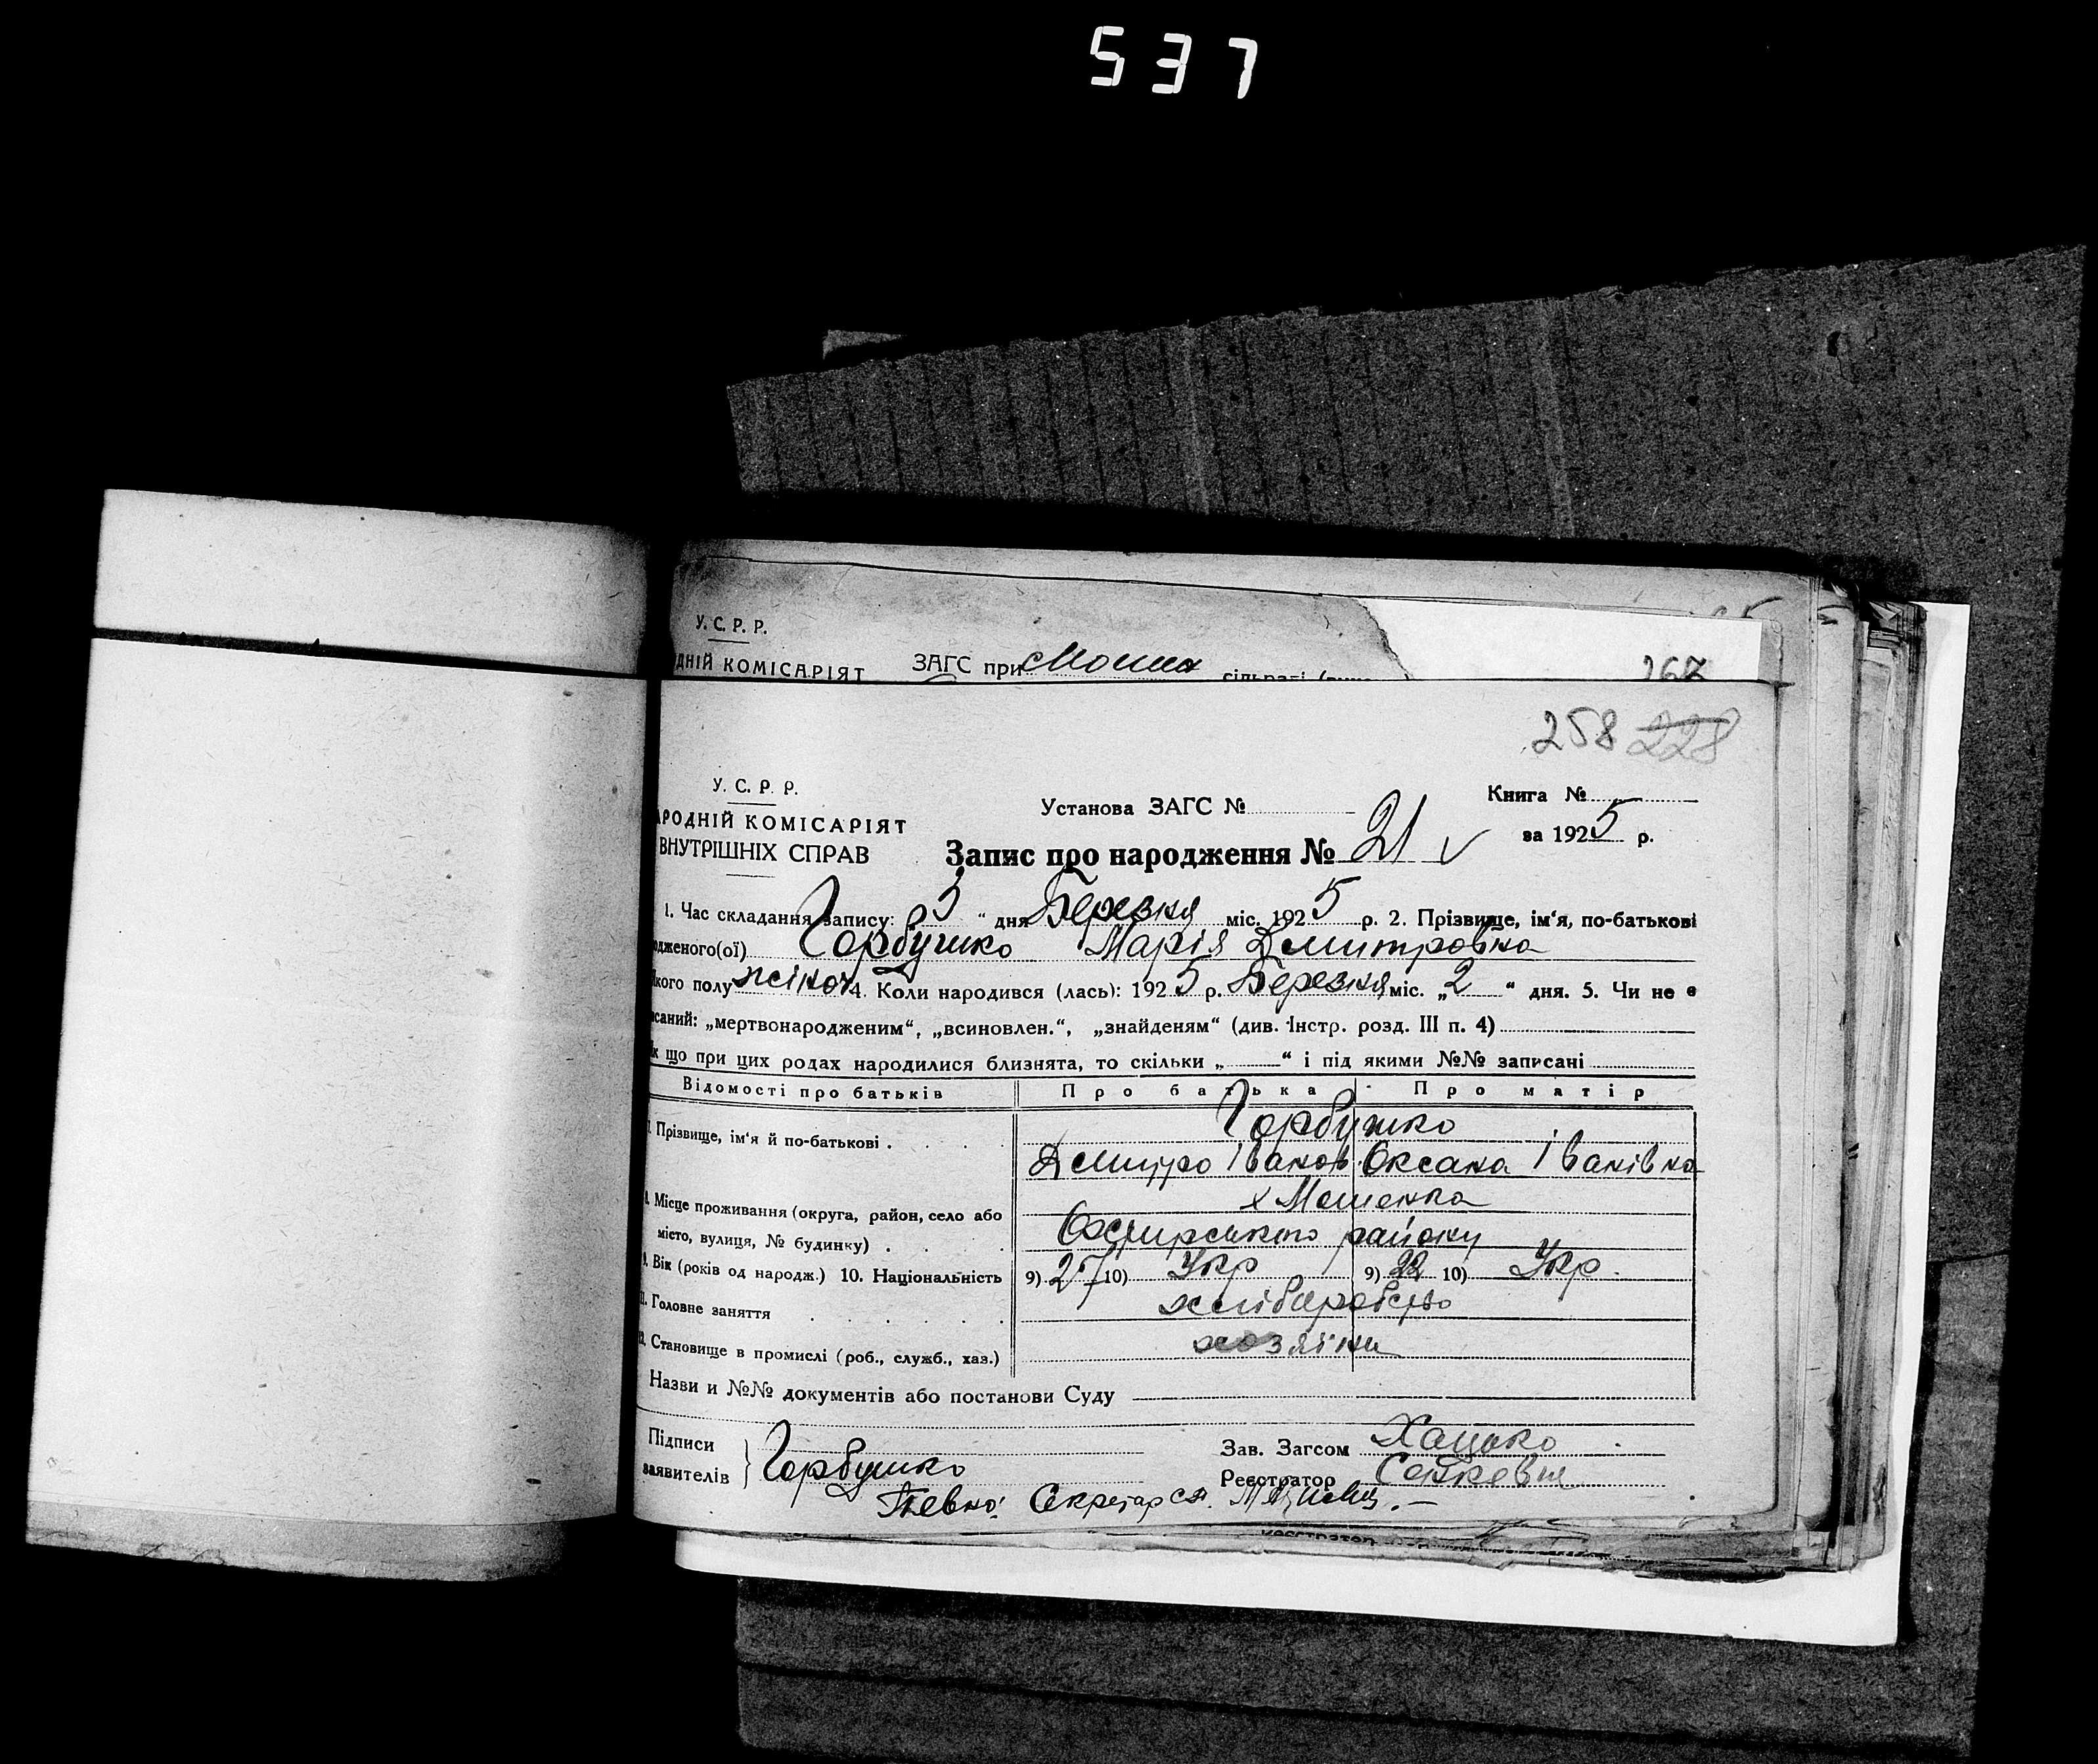 537
У. С. Р. Р.
ДНІЙ КОМІСАРІЯТ ЗАГС при
267
258 228
У. С. Р. Р.
Установа ЗАГС № Книга №
АРОДНІЙ КОМІСАРІЯТ
за 1925 р.
ВНУТРІШНІХ СПРАВ Запис про народження № 21 v
1. Час складання запису: „ 3 “ дня Березня міс. 1925 р. 2. Прізвище, ім'я, по-батькові
одженого(ої) Горбушко Марія Дмитровна
якого полу жіноч 4. Коли народився (лась): 1925 р. Березня міс. „ 2 “ дня. 5. Чи не є
исаний: „мертвонародженим“, „всиновлен.“, „знайденям“ (див. Інстр. розд. III п. 4)
Як що при цих родах народилися близнята, то скільки „ “ і під якими №№ записані
Відомості про батьків Про батька Про матір
7. Прізвище, ім'я й по-батькові . Горбушко
Дмитро Іванов. Оксана Іванівна
8. Місце проживання (округа, район, село або х Мошенка
місто, вулиця, № будинку) . району
9. Вік (років од народж.) 10. Національність 9) 27 10) Укр 9) 22 10) Укр.
11. Головне заняття хліборобство
12. Становище в промислі (роб., служб., хаз.) хозяїни
Назви и №№ документів або постанови Суду
Підписи Зав. Загсом Хацько
заявителів Горбушко Реєстратор
Певно: Секретар с.р.